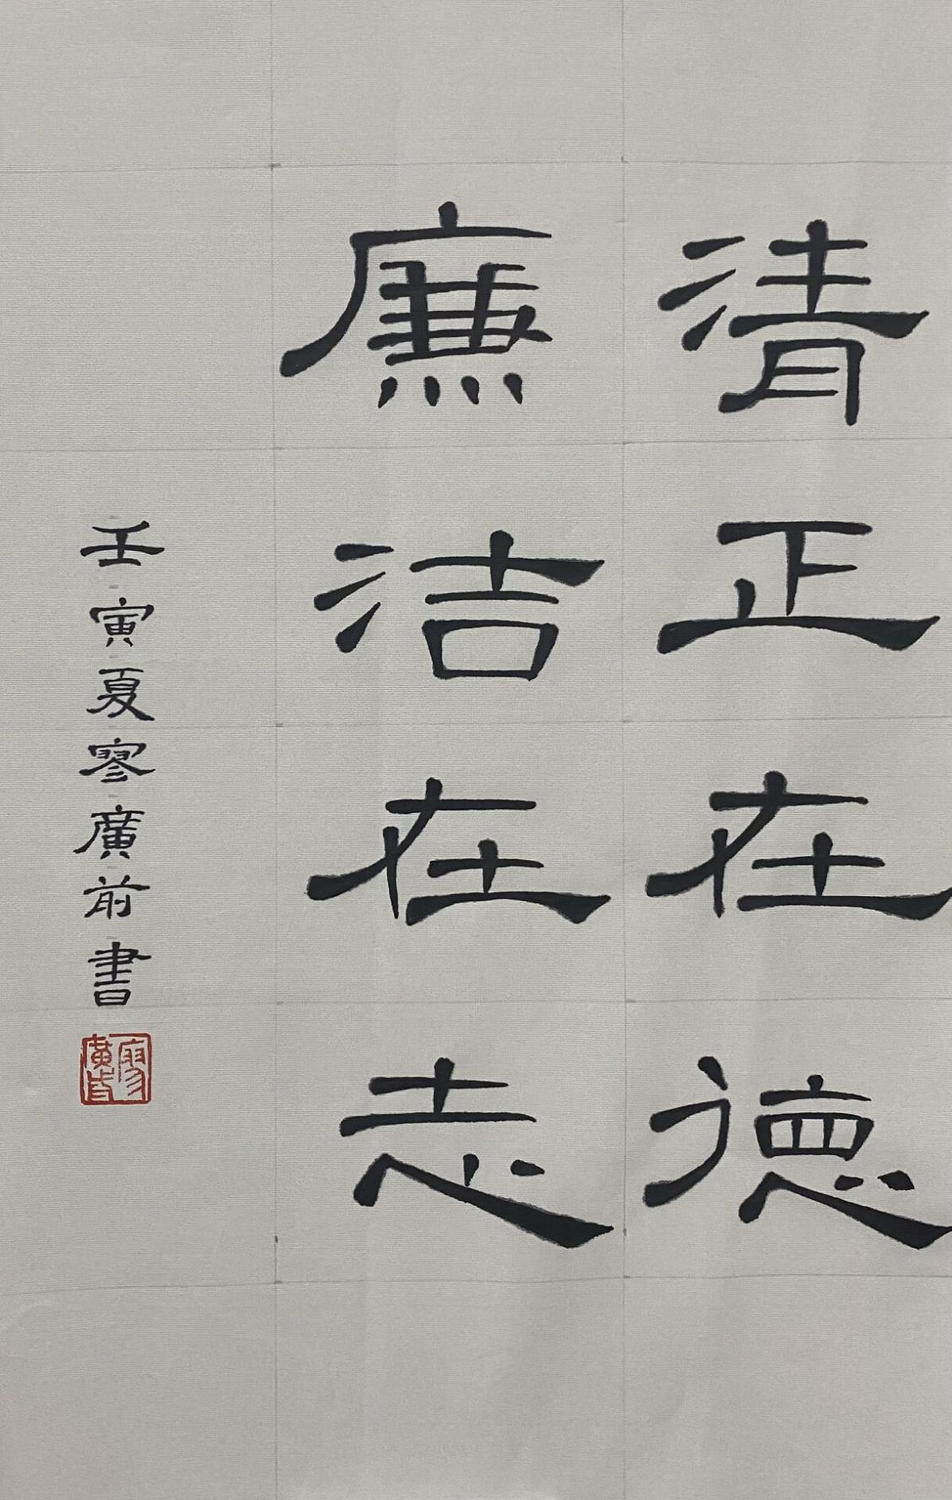 清正在德
廉洁在志
壬寅夏寥廣前書
廖廣前